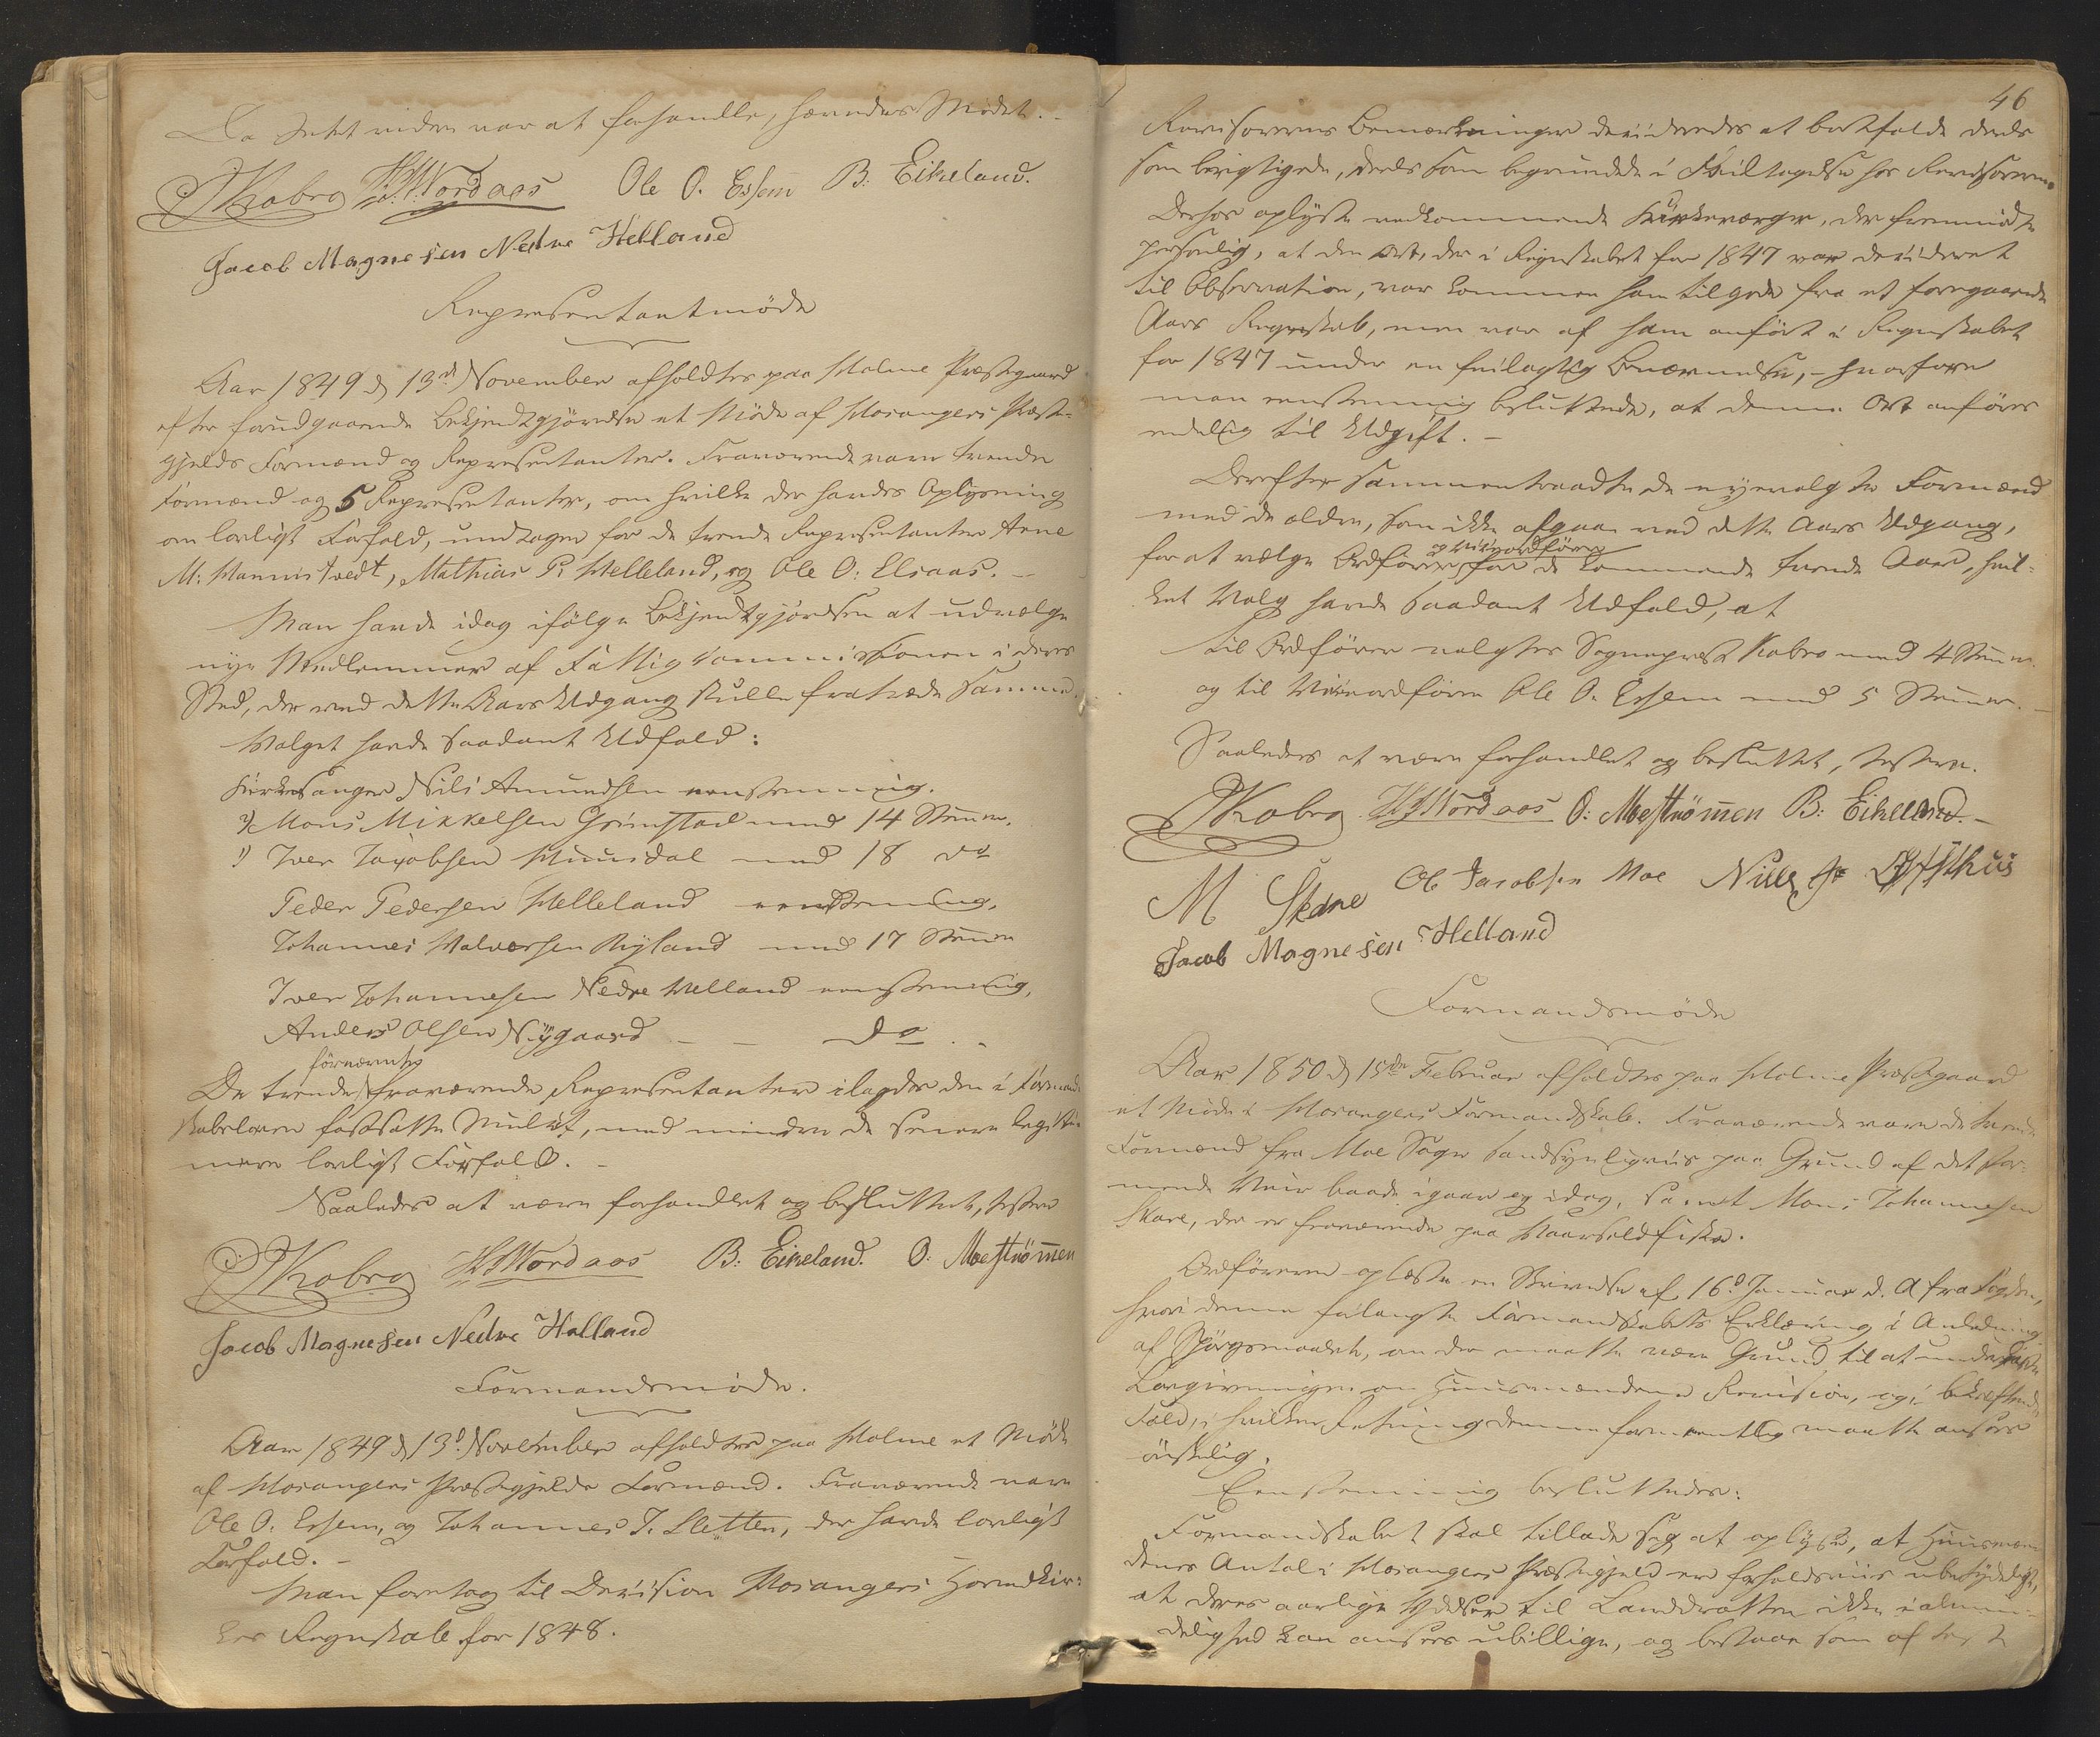 Da Intet videre var at forhandle, hævedes Mødet. -
Kobro H. Nordaas Ole O. Essem B: Eikeland.
Jacob Magnesen Nedre Helland
Repræsentantmøde
Aar 1849 d 13d November afholdtes paa Holme Præstegaard
efter forudgaaende Bekjendtgjørelse et Møde af Hosangers Præste-
gjelds Formænd og Repræsentanter. Fraværende vare trende
Formænd og 5 Repræsentanter, om hvilke der havdes Oplysning
om lovligt Forfald, undtagen for de trende Repræsentanter Arne
M: Mannistvedt, Mathias P: Helleland, og Ole O: Elsaas. -
Man havde idag ifølge Bekjendtgjørelsen at udvælge
nye Medlemmer af Fattigcommissionen i deres
Sted, der med dette Aars Udgang skulle fratræde samme.
Valget havde saadant Udfald:
Kirkesanger Nils Amundsen eenstemmig.
2) Mons Mikkelsen Grimstad med 14 Stemmer.
1) Iver Jacobsen Huusdal med 18 do
Peder Pedersen Helleland eenstemmig.
Johannes Halvorsen Byland med 17 Stemmer
Iver Johannesen Nedre Helland eenstemmig,
Anders Olsen Nygaard - - do . -
førnævnte
De trende fraværende Repræsentanter ilagdes den i Formand-
skabsloven fastsatte Mulkt, med mindre de senere legiti-
mere lovligt Forfald. -
Saaledes at være forhandlet og besluttet, testere
Kobro H Nordaas B: Eikeland. O: Moestrømmen
Jacob Magnesen Nedre Helland
Formandsmøde.
Aar 1849 d 13d November afholdtes paa Holme et Møde
af Hosangers Præstegjelds Formænd. Fraværende vare
Ole O. Essem, og Johannes J. Sletten, der havde lovligt
Forfald. -
Man foretog til Decision Hosangers Hovedkir-
kes Regnskab for 1848.
46
Revisorernes Bemærkninger decideredes at bortfalde deels
som berigtigede, deels som begrundede i Feiltagelse hos Revisorerne.
Derhos oplyste vedkommende Kirkeværger, der fremmødte
personlig, at den Ort, der i Regnskabet for 1847 var decideret
til Observation, var kommen ham tilgode fra et foregaaende
Aars Regnskab, men var af ham anført i Regnskabet
for 1847 under en feilagtig Benævnelse, - hvorfore
man eenstemmig besluttede, at denne Ort anføres
endelig til Udgift. -
Derefter sammentraadte de nyevalgte Formænd
med de ældre, som ikke afgaae ved dette Aars Udgang,
og Viceordfører
for at vælge Ordfører for de kommende tvende Aar, hvil-
ket Valg havde saadant Udfald, at
til Ordfører valgtes Sognepræst Kobro med 4 Stemmer
og til Viceordfører Ole O. Essem med 5 Stemmer. -
Saaledes at være forhandlet og besluttet, testere.
Kobro H Nordaas O: Moestrømmen B: Eikeland. -
M Skare Ole Jacobsen Moe Nills Ofsthus
Jacob Magnesen Helland
Formandsmøde
Aar 1850 d 15de Februar afholdtes paa Holme Præstegaard
et Møde i Hosangers Formandskab. Fraværende vare de tvende
Formænd fra Moe Sogn sandsynligviis paa Grund af det stor-
mende Veir baade igaar og idag, samt Mons Johannesen
Skare, der er fraværende paa Vaarsildfiske.
Ordføreren oplæste en Skrivelse af 16d Januar d. A fra Fogden,
hvori denne forlangte Formandskabets Erklæring i Anledning
af Spørgsmaalet, om der maatte være Grund til at underkaste
Lovgivningen om Huusmændene Revision, og, i bekræftende
Fald, i hvilken Retning denne formeentlig maatte ansees
ønskelig.
Eenstemmig besluttedes:
Formandskabet skal tillade sig at oplyse, at Huusmæn-
denes Antal i Hosangers Præstegjeld ere forholdsviis ubetydeligt,
at deres aarlige Ydelser til Landdrotten ikke i almin-
delighed kan ansees ubillige, og bestaae som oftest